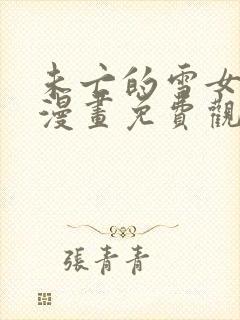 未亡的雪女
漫畫免費觀
張青青